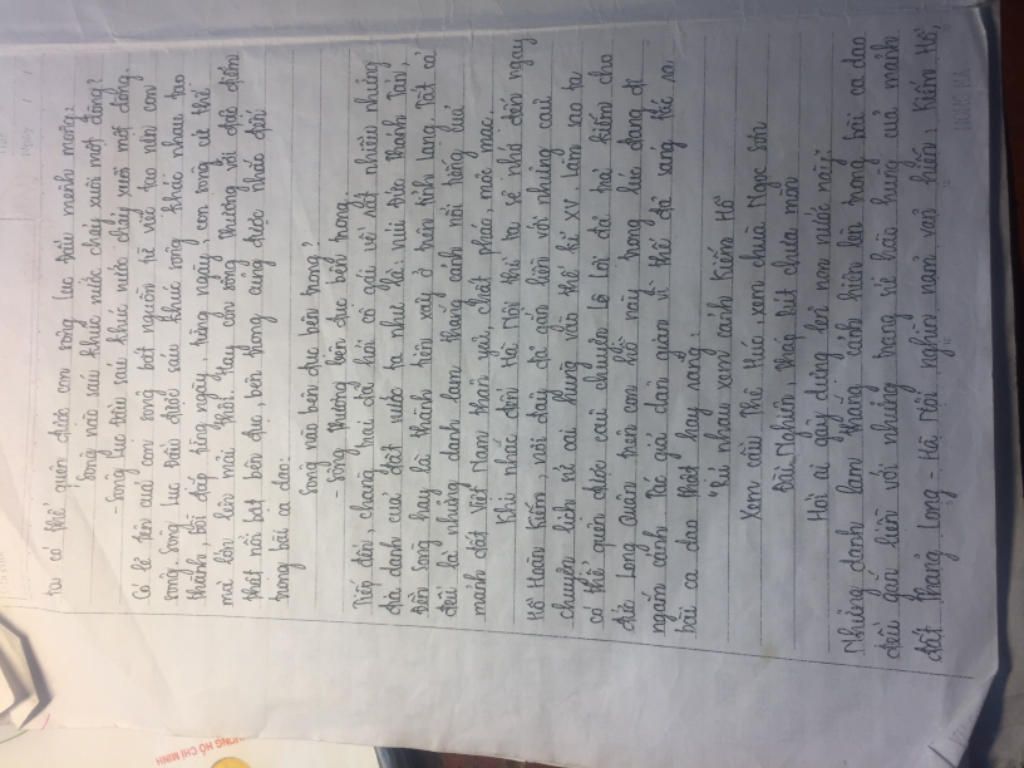 ta có thể quên được con sông Lục Đầu mênh mông:
Sông nào sáu khúc nước chảy xuôi một dòng?
- Sông Lục Đầu sáu khúc nước chảy xuôi một dòng.
Có lẽ tên của con sông bắt nguồn từ việc tạo nên con
sông. Sông Lục Đầu được sáu khúc sông khác nhau tạo
thành, bồi đắp từng ngày, từng ngày, con sông cứ thế
mà lớn lên mãi thôi. Hay con sông Thương với đặc điểm
thật nổi bật bên đục, bên trong cũng được nhắc đến
trong bài ca dao:
Sông nào bên đục bên trong?
- Sông Thương bên đục bên trong.
Tiếp đến, chàng trai đã hỏi cô gái về rất nhiều những
địa danh của đất nước ta như là: núi Đức Thánh Tản,
đền Sòng hay là thành tiên xây ở trên tỉnh Lạng. Tất cả
đều là những danh lam thắng cảnh nổi tiếng của
mảnh đất Việt Nam thân yêu, chất phác, mộc mạc.
Khi nhắc đến Hà Nội thì ta sẽ nhớ đến ngay
Hồ Hoàn Kiếm, nơi đây đã gắn liền với những câu
chuyện lịch sử oai hùng vào thế kỉ XV. Làm sao ta
có thể quên được câu chuyện Lê Lợi đã trả kiếm cho
đức Long Quân trên con hồ này trong lúc đang đi
ngắm cảnh. Tác giả dân gian vì thế đã sáng tác ra
bài ca dao thật hay rằng:
"Rủ nhau xem cảnh Kiếm Hồ
Xem cầu Thê Húc, xem chùa Ngọc Sơn
Đài Nghiên, tháp Bút chưa mòn
Hỏi ai gây dựng lên non nước này"
Những danh lam thắng cảnh hiện lên trong bài ca dao
đều gắn liền với những trang sử hào hùng của mảnh
đất Thăng Long - Hà Nội nghìn năm văn hiến, Kiếm Hồ,
ƯƠNG HỒ CHÍ MINH